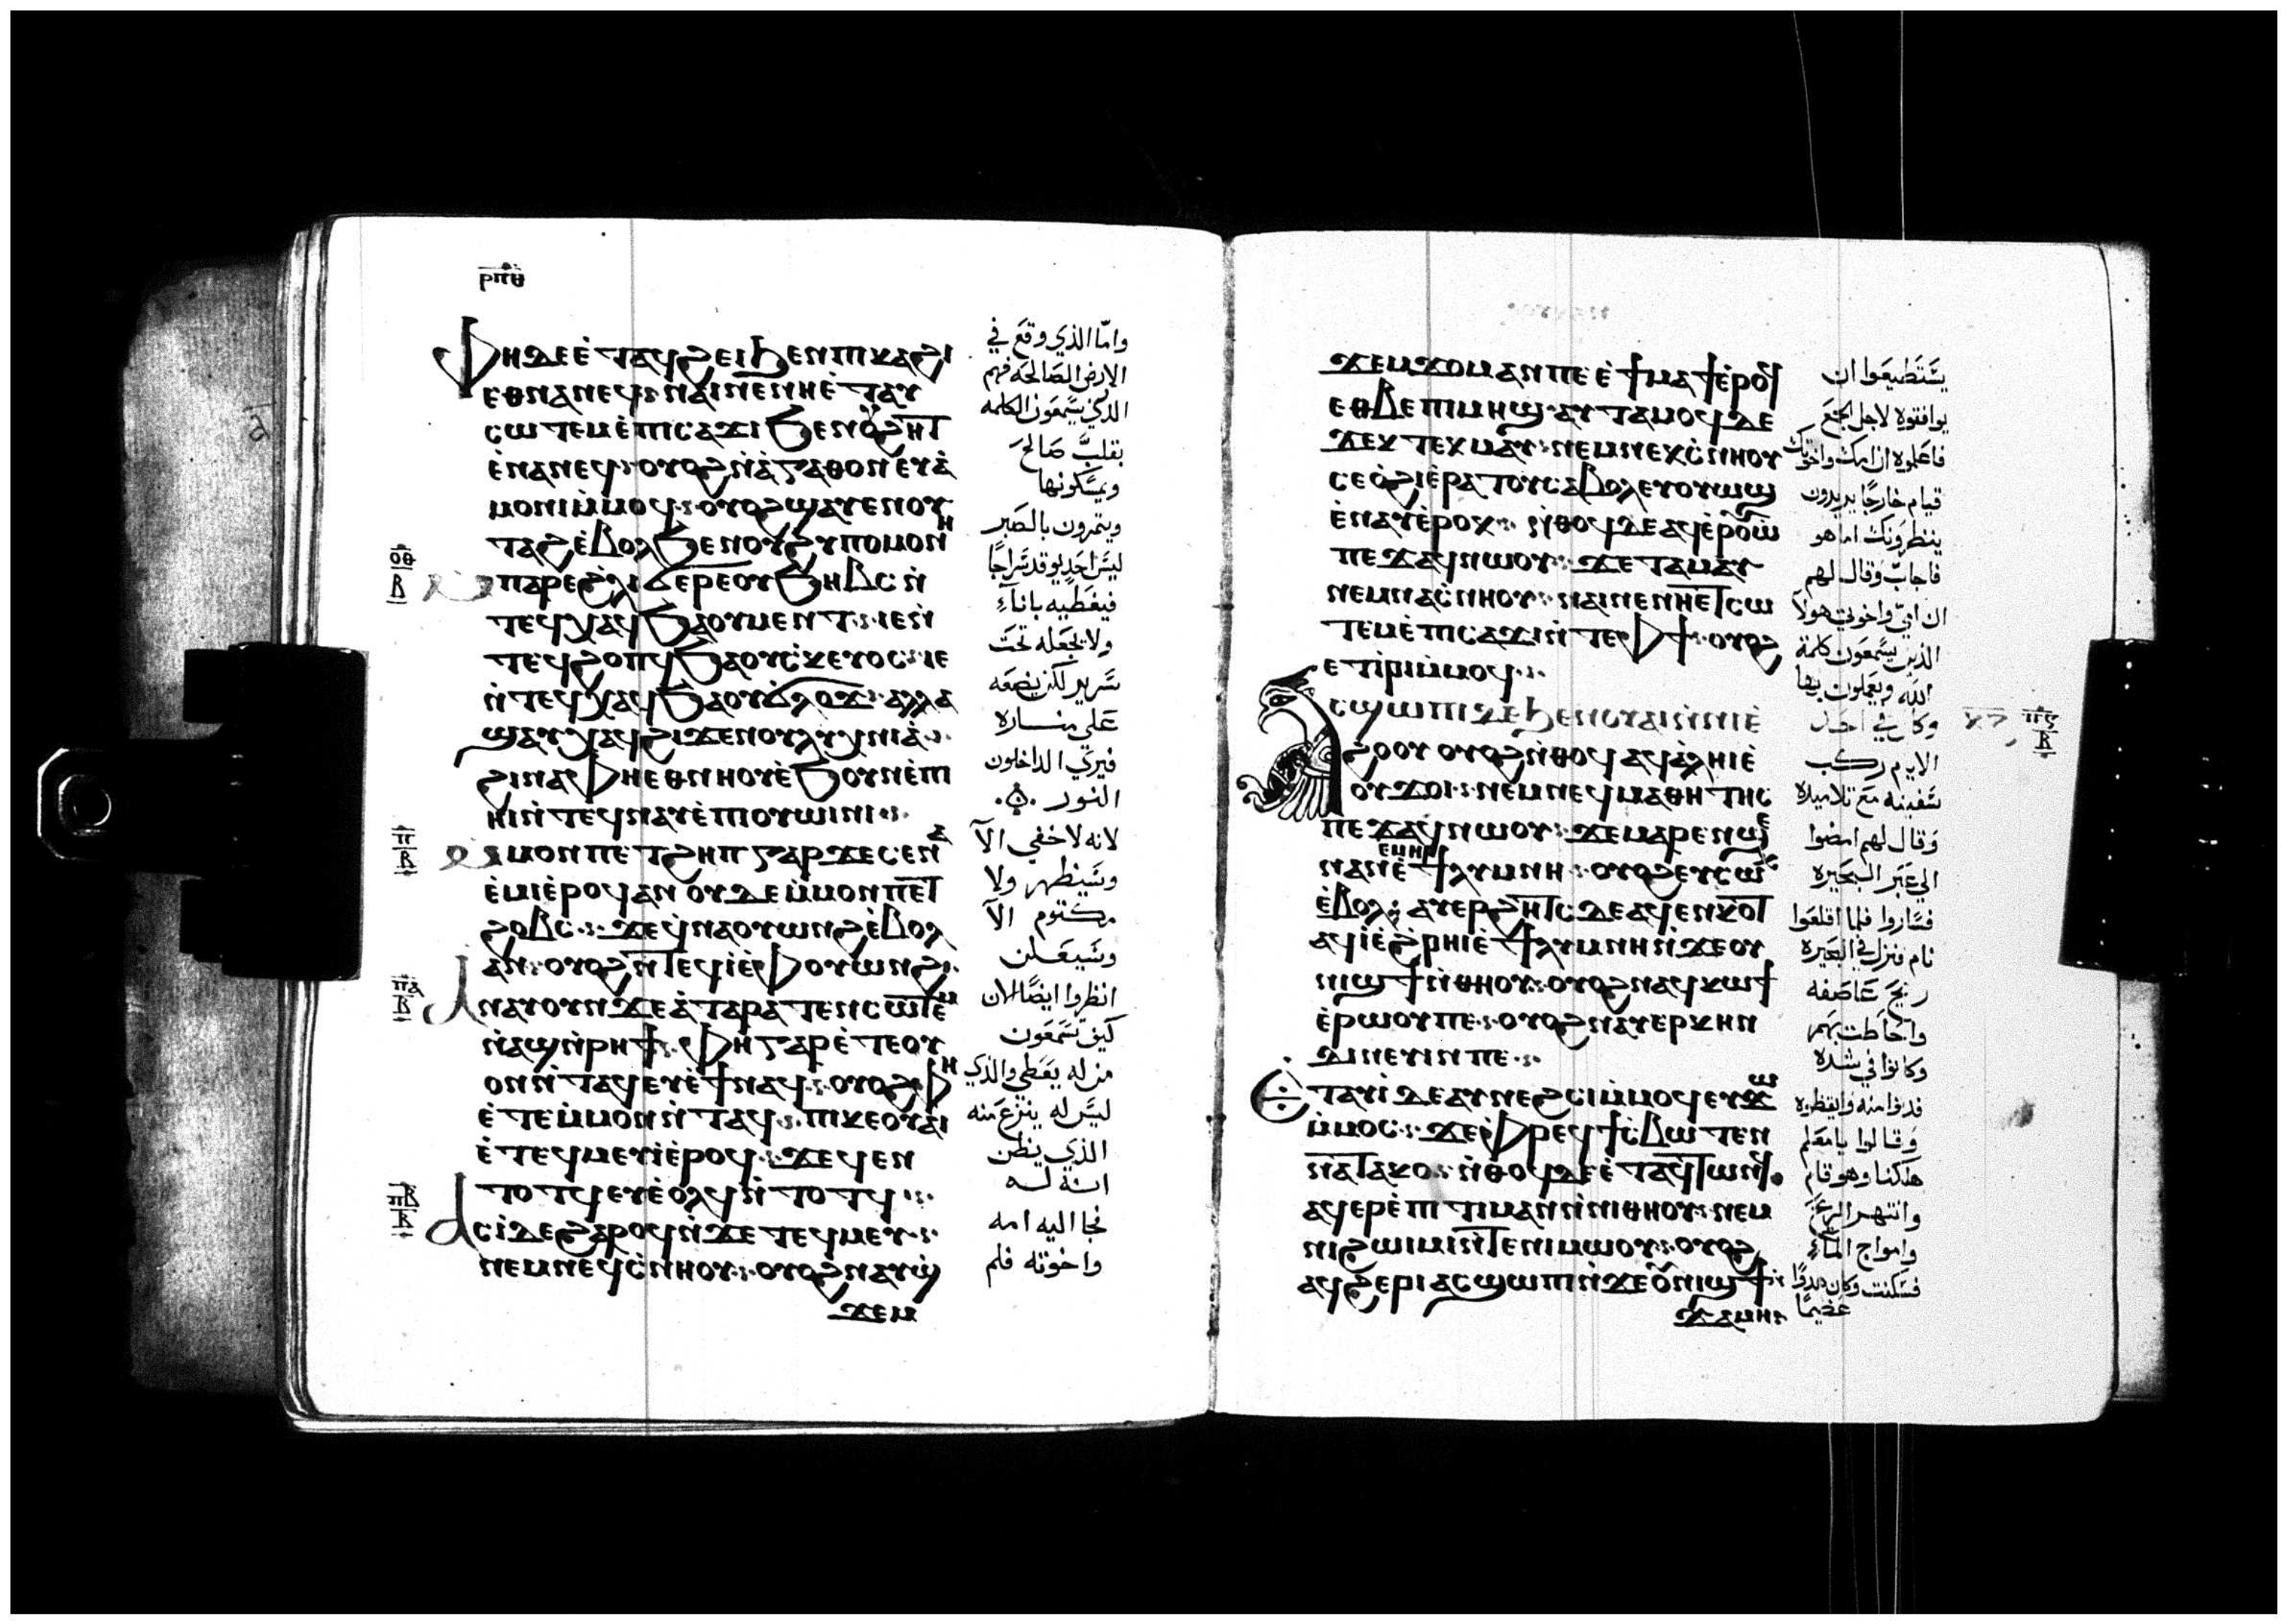 ⲣⲡⲑ
ⲫⲏ ⲇⲉ ⲉ̀ⲧⲁϥϩⲉⲓ ϧⲉⲛ ⲡⲓⲕⲁϩⲓ
ⲉⲑⲛⲁⲛⲉϥ ⲛⲁⲓ ⲛⲉ ⲛⲏ ⲉ̀ⲧⲁⲩ
ⲥⲱⲧⲉⲙ ⲉ̀ⲡⲓⲥⲁϫⲓ ϧⲉⲛ ⲟⲩϩⲏⲧ
ⲉ̀ⲛⲁⲛⲉϥ ⲟⲩⲟϩ ⲛ̀ⲁ̀ⲅⲁⲑⲟⲛ ⲉⲩⲁ̀
ⲙⲟⲛⲓ ⲙ̀ⲙⲟϥ ⲟⲩⲟϩ ϣⲁⲩⲉⲛⲟⲩ
ⲧⲁϩ ⲉ̀ⲃⲟⲗ ϧⲉⲛ ⲟⲩϩⲩⲡⲟⲙⲟⲛⲏ
ⲙ̀ⲡⲁⲣⲉ ϩⲗⲓ ϭⲉⲣⲉ ⲟⲩϧⲏⲃⲥ ⲛ̀
ⲧⲉϥⲭⲁϥ ϧⲁ ⲟⲩⲙⲉⲛⲧ ⲓⲉ ⲛ̀
ⲧⲉϥϩⲟⲡϥ ϧⲁ ⲟⲩⲥ̀ⲕⲉⲩⲟⲥ ⲓⲉ
ⲛ̀ⲧⲉϥⲭⲁϥ ϧⲁ ⲟⲩϭ̀ⲗⲟϫ ⲁⲗⲗⲁ
ϣⲁⲩⲭⲁϥ ϩⲓϫⲉⲛ ⲟⲩⲗⲩⲭⲛⲓⲁ̀
ϩⲓⲛⲁ ⲫⲏ ⲉⲑⲛⲏⲟⲩ ⲉ̀ϧⲟⲩⲛ ⲉ̀ⲡⲓ
ⲏⲓ ⲛ̀ⲧⲉϥⲛⲁⲩ ⲉ̀ⲡⲓⲟⲩⲱⲓⲛⲓ
ⲙ̀ⲙⲟⲛ ⲡⲉⲧϩⲏⲡ ⲅⲁⲣ ϫⲉ ⲥⲉⲛⲁ
ⲉ̀ⲙⲓ ⲉ̀ⲣⲟϥ ⲁⲛ ⲟⲩⲇⲉ ⲙ̀ⲙⲟⲛ ⲡⲉⲧ
ϩⲟⲃⲥ ϫⲉ ϥ̀ⲛⲁⲟⲩⲱⲛϩ ⲉ̀ⲃⲟⲗ
ⲁⲛ ⲟⲩⲟϩ ⲛ̀ⲧⲉϥⲓ̀ ⲉ̀ⲫⲟⲩⲱⲛϩ
ⲁⲛⲁⲩ ⲟⲩⲛ ϫⲉ ⲁ̀ⲧⲁⲣⲁⲧⲉⲛⲥⲱⲧⲉⲙ
ⲛ̀ⲁϣ ⲛ̀ⲣⲏϯ ⲫⲏ ⲅⲁⲣ ⲉ̀ⲧⲉ ⲟⲩ
ⲟⲛ ⲛ̀ⲧⲁϥ ⲉⲩⲉ̀ϯ ⲛⲁϥ ⲟⲩⲟϩ ⲫⲏ
ⲉ̀ⲧⲉ ⲙ̀ⲙⲟⲛ ⲛ̀ⲧⲁϥ ⲡⲓⲕⲉⲟⲩⲁⲓ
ⲉ̀ⲧⲉϥⲙⲉⲩⲓ̀ ⲉ̀ⲣⲟϥ ϫⲉ ϥⲉⲛ
ⲧⲟⲧϥ ⲉⲩⲉ̀ⲟⲗϥ ⲛ̀ⲧⲟⲧϥ
ⲁⲥⲓ̀ ⲇⲉ ϩⲁⲣⲟϥ ⲛ̀ϫⲉ ⲧⲉϥⲙⲁⲩ
ⲛⲉⲙ ⲛⲉϥⲥ̀ⲛⲏⲟⲩ ⲟⲩⲟϩ ⲛⲁⲩϣ̀
ϫⲉⲙ
ⲟⲑ
ⲃ
ⲡ
ⲃ
ⲡⲁ
ⲃ
ⲡⲃ
ⲃ
وامّا الذي وقع في
الارض الصالحه فهم
الذين يسمعون الكلمه
بقلب صالح
ويمسكونها
ويثمرون بالصبر
ليس احد يوقد سراجًا
فيغطيه باناء
ولا يجعله تحت
سرير لكن يضعه
على مناره
فيري الداخلون
النور
لانه لا خفي الا
وسيظهر ولا
مكتوم الا
وسيعلن
انظروا ايضًا الان
كيف تسمعون
من له يعطي والذي
ليس له ينزع منه
الذي يظن
انه له
فجا اليه امه
واخوته فلم
ϫⲉⲙϫⲟⲙ ⲁⲛ ⲡⲉ ⲉ̀ϯⲙⲁϯ ⲉ̀ⲣⲟϥ
ⲉⲑⲃⲉ ⲡⲓⲙⲏϣ ⲁⲩⲧⲁⲙⲟϥ ⲇⲉ
ϫⲉ ⲕ ⲧⲉⲕⲙⲁⲩ ⲛⲉⲙ ⲛⲉⲕⲥ̀ⲛⲏⲟⲩ
ⲥⲉⲟ̀ϩⲓ ⲉ̀ⲣⲁⲧⲟⲩ ⲥⲁⲃⲟⲗ ⲉⲩⲟⲩⲱϣ
ⲉ̀ⲛⲁⲩ ⲉ̀ⲣⲟⲕ ⲛ̀ⲑⲟϥ ⲇⲉ ⲁϥⲉ̀ⲣⲟⲩⲱ̀
ⲡⲉϫⲁϥ ⲛⲱⲟⲩ ϫⲉ ⲧⲁⲙⲁⲩ
ⲛⲉⲙ ⲛⲁⲥ̀ⲛⲏⲟⲩ ⲛⲁⲓ ⲛⲉ ⲛⲏⲉⲧⲥⲱ
ⲧⲉⲙ ⲉ̀ⲡⲓⲥⲁϫⲓ ⲛ̀ⲧⲉ ⲫϯ ⲟⲩⲟϩ
ⲉⲧⲓ̀ⲣⲓ ⲙ̀ⲙⲟϥ
ⲁⲥϣⲱⲡⲓ ⲇⲉ ϧⲉⲛ ⲟⲩⲁⲓ ⲛ̀ⲛⲓⲉ̀
ϩⲟⲟⲩ ⲟⲩⲟϩ ⲛ̀ⲑⲟϥ ⲁϥⲁ̀ⲗⲏⲓ ⲉ̀
ⲟⲩϫⲟⲓ ⲛⲉⲙ ⲛⲉϥⲙⲁⲑⲏⲧⲏⲥ
ⲡⲉϫⲁϥ ⲛⲱⲟⲩ ϫⲉ ⲙⲁⲣⲉⲛϣⲉ
ⲛⲁⲛ ⲉ̀ⲙⲏⲣ ⲉ̀ϯⲗⲩⲙⲛⲏ ⲟⲩⲟϩ ⲉⲩⲥⲱⲕ
ⲉ̀ⲃⲟⲗ ⲁⲩⲉⲣϩⲏⲧⲥ ⲇⲉ ⲁϥⲉⲛⲕⲟⲧ
ⲁϥⲓ̀ ⲉ̀ϩ̀ⲣⲏⲓ ⲉ̀ϯⲗⲩⲙⲛⲏ ⲛ̀ϫⲉ ⲟⲩ
ⲛⲓϣϯ ⲛ̀ⲑⲏⲟⲩ ⲟⲩⲟϩ ⲛⲁϥⲕⲱϯ
ⲉ̀ⲣⲱⲟⲩ ⲡⲉ ⲟⲩⲟϩ ⲛⲁⲩⲉⲣⲕⲏⲛ
ⲇⲓⲛⲉⲩⲓⲛ ⲡⲉ
ⲉⲧⲁⲩⲓ̀ ⲇⲉ ⲁⲩⲛⲉϩⲥⲓ ⲙ̀ⲙⲟϥ ⲉⲩϫⲱ
ⲙ̀ⲙⲟⲥ ϫⲉ ⲫⲣⲉϥϯⲥ̀ⲃⲱ ⲧⲉⲛ
ⲛⲁⲧⲁⲕⲟ ⲛ̀ⲑⲟϥ ⲇⲉ ⲉ̀ⲧⲁϥⲧⲱⲛϥ
ⲁϥⲉⲣⲉ̀ⲡⲓⲧⲓⲙⲁⲛ ⲛ̀ⲛⲓⲑⲏⲟⲩ ⲛⲉⲙ
ⲛⲓϩⲱⲓⲙⲓ ⲛ̀ⲧⲉ ⲛⲓⲙⲱⲟⲩ ⲟⲩⲟϩ
ⲁϥϩⲉⲣⲓ ⲁⲥϣⲱⲡⲓ ⲛ̀ϫⲉ ⲟⲩⲛⲓϣϯ ⲛ̀
ϫⲁⲙⲏ
يستطيعوا ان
يوافتوه لاجل الجمع
فاعلموه ان امك واخوتك
قيام خارجًا يريدون
ينظرونك اما هو
فاجاب وقال لهم
ان امي واخوتي هولا
الذين يسمعون كلمة
الله ويعملون بها
وكان في احد
الايام ركب
سفينه مع تلاميذه
وقال لهم امضوا
الي عبر البحيره
فساروا فلما اقلعوا
نام فنزل في البحيره
ريح عاصفه
واحاطت بهم
وكانوا في شده
فدنوا منه وايقظوه
وقالوا يا معلم
هلكنا وهو قام
وانتهر الريح
وامواج الماء
فسكنت وكان هدوًا
عضيمًا
ⲡⲋ
ⲃ